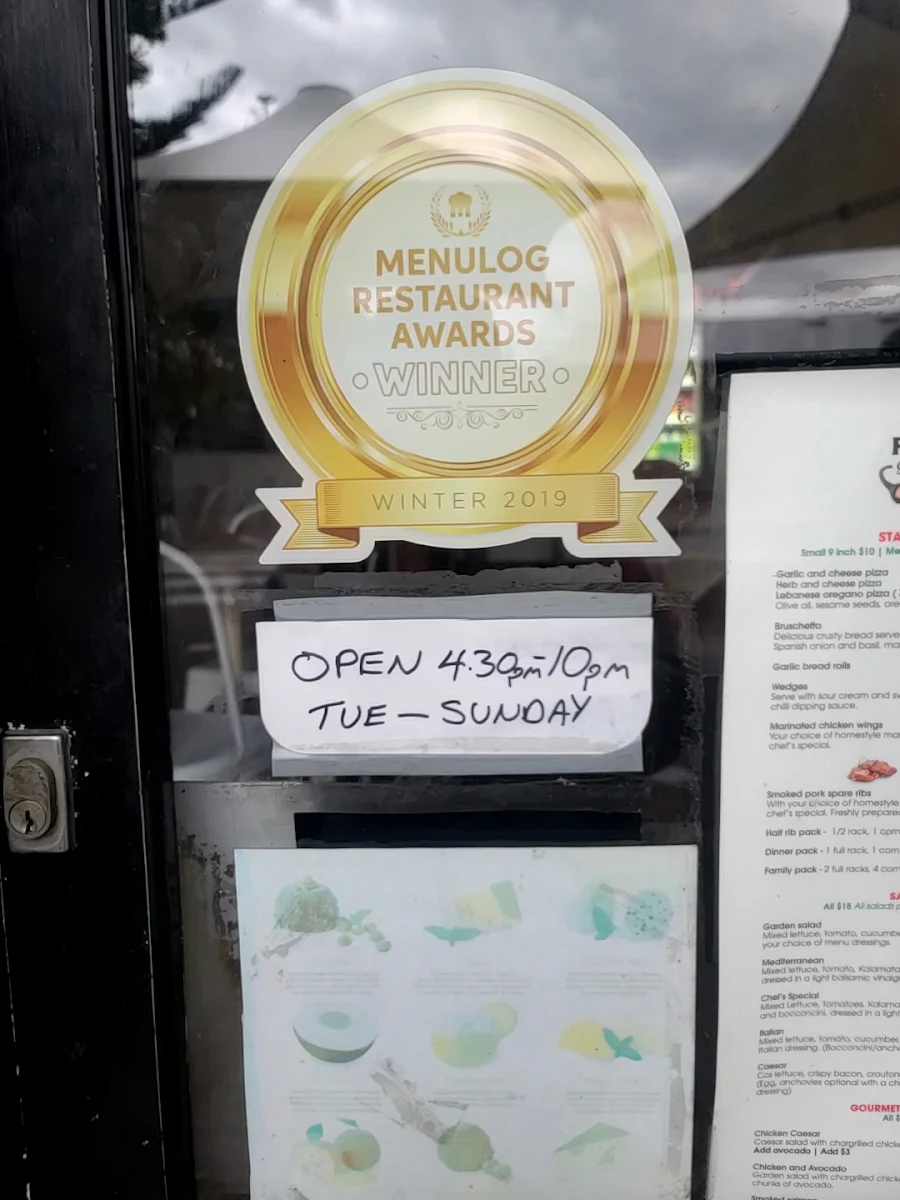 MENULOG
RESTAURANT
AWARDS
WINNER
WINTER 2019
OPEN 4.30pm-10pm
TUE - SUNDAY
STA
Small 9 inch $10 | Me
Garlic and cheese pizza
Herb and cheese pizza
Lebanese oregano pizza (
Olive oil, sesame seeds, ore
Bruschetta
Delicious crusty bread serve
Spanish onion and basil, ma
Garlic bread rolls
Wedges
Serve with sour cream and sw
chilli dipping sauce.
Marinated chicken wings
Your choice of homestyle ma
chef's special.
Smoked pork spare ribs
With your choice of homestyle
chef's special. Freshly prepared
Half rib pack - 1/2 rack, 1 corn
Dinner pack - 1 full rack, 1 corn
Family pack - 2 full racks, 4 corn
SA
All $18 All salads p
Garden salad
Mixed lettuce, tomato, cucumbe
your choice of menu dressings.
Mediterranean
Mixed lettuce, tomato, Kalamata
dressed in a light balsamic vinaig
Chef's Special
Mixed Lettuce, tomatoes, Kalama
and bocconcini, dressed in a light
Italian
Mixed lettuce, tomato, cucumber,
Italian dressing. (Bocconcini/ancho
Caesar
Cos lettuce, crispy bacon, crouton
(Egg, anchovies optional with a ch
dressing)
GOURMET
All $
Chicken Caesar
Caesar salad with chargrilled chicke
Add avocado | Add $3
Chicken and Avocado
Garden salad with chargrilled chick
chunks of avocado.